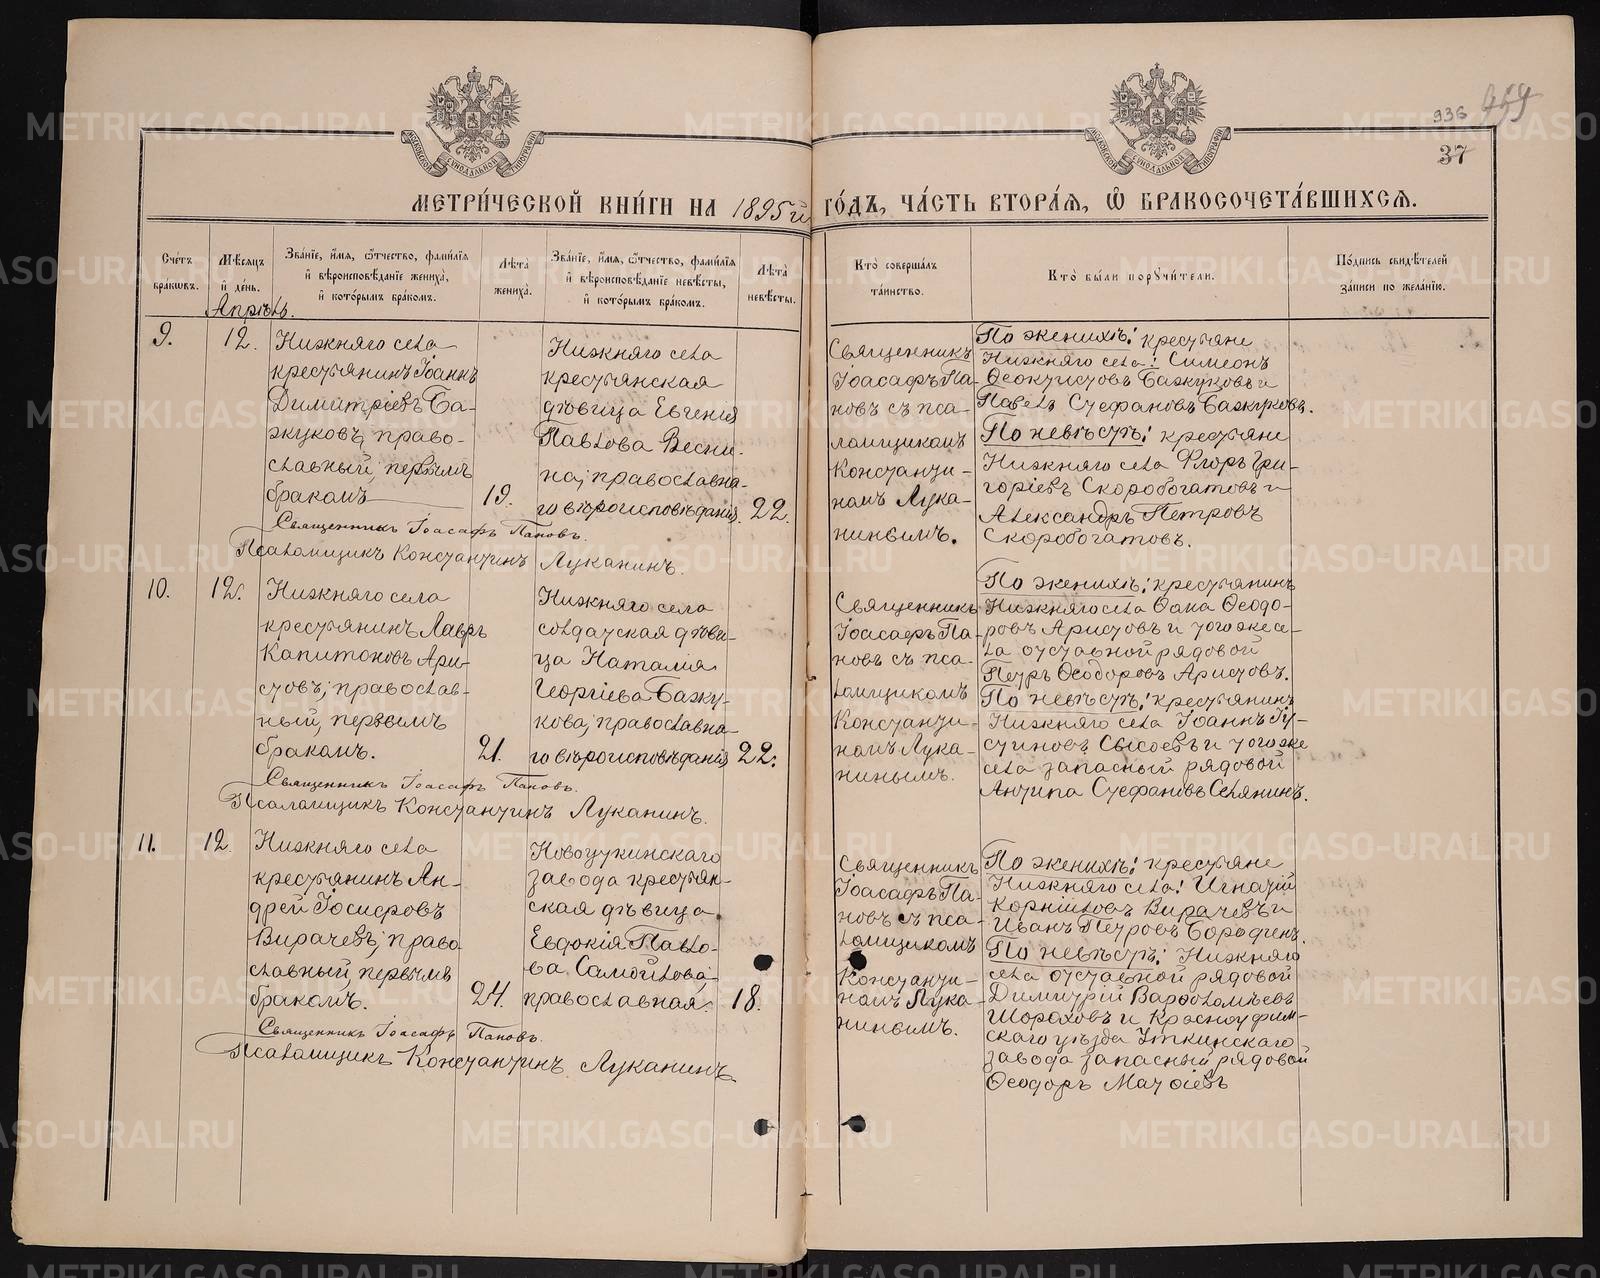 936 959
37
МОСКОВСКОЙ СѴНОДАЛЬНОЙ ТИПОГРАФІИ
МОСКОВСКОЙ СѴНОДАЛЬНОЙ ТИПОГРАФІИ
МЕТРИ́ЧЕСКОЙ КНИ́ГИ НА 1895й ГО́ДЪ, ЧА́СТЬ ВТОРА́Ѧ, Ѽ БРАКОСОЧЕТА́ВШИХСѦ.
Сче́тъ бра́кωвъ.
Мѣ́сѧцъ й де́нь.
Зва́нїе, и́мѧ, ѻ́тчество, фами́лїѧ й вѣроисповѣ́данїе жениха̀, й кото́рымъ бра́комъ.
Лѣ́та̀ жениха̀.
Зва́нїе, и́мѧ, ѻ́тчество, фами́лїѧ й вѣроисповѣ́данїе невѣ́сты, й кото́рымъ бра́комъ.
Лѣ́та̀ невѣ́сты.
Кто̀ соверша́лъ та́инство.
Кто̀ бы́ли порꙋчи́тели.
По́дпись свидѣ́телей за́писи по жела́нїю.
Апрѣль.
9.
12.
Нижняго села
крестьянинъ Іоаннъ
Димитріевъ Ба-
жуковъ, право-
славный, первымъ
бракомъ
19.
Нижняго села
крестьянская
дѣвица Евгенія
Павлова Весни-
на, православна-
го вѣроисповѣданія.
22.
Священникъ
Іоасафъ Па-
новъ съ пса-
ломщикомъ
Константи-
номъ Лука-
нинымъ.
По женихѣ: крестьяне
Нижняго села: Симеонъ
Ѳеоктистовъ Бажуковъ и
Павелъ Стефановъ Бажуковъ.
По невѣстѣ: крестьяне
Нижняго села Флоръ Гри-
горіевъ Скоробогатовъ и
Александръ Петровъ
Скоробогатовъ.
Священникъ Іоасафъ Пановъ.
Псаломщикъ Константинъ Луканинъ.
10.
12.
Нижняго села
крестьянинъ Лавръ
Капитоновъ Ари-
стовъ, православ-
ный, первымъ
бракомъ.
21.
Нижняго села
солдатская дѣви-
ца Наталія
Георгіева Бажу-
кова, православна-
го вѣроисповѣданія
22.
Священникъ
Іоасафъ Па-
новъ съ пса-
ломщикомъ
Константи-
номъ Лука-
нинымъ.
По женихѣ: крестьянинъ
Нижняго села Ѳома Ѳеодо-
ровъ Аристовъ и того же се-
ла отставной рядовой
Петръ Ѳеодоровъ Аристовъ.
По невѣстѣ: крестьянинъ
Нижняго села Іоаннъ Іу-
стиновъ Сысоевъ и того же
села запасный рядовой
Антипа Стефановъ Селянинъ.
Священникъ Іоасафъ Пановъ.
Псаломщикъ Константинъ Луканинъ.
11.
12.
Нижняго села
крестьянинъ Ан-
дрей Іосифовъ
Вирачевъ, право
славный, первымъ
бракомъ.
24.
Новоуткинскаго
завода крестьян-
ская дѣвица
Евдокія Павло-
ва Самойлова,
православная.
18.
Священникъ
Іоасафъ Па-
новъ съ пса-
ломщикомъ
Константи-
номъ Лука-
нинымъ.
По женихѣ: крестьяне
Нижняго села: Игнатій
Корниловъ Вирачевъ и
Иванъ Петровъ Бородинъ.
По невѣстѣ: Нижняго
села отставной рядовой
Димитрій Варѳоломѣевъ
Шороховъ и Красноуфим-
скаго уѣзда Уткинскаго
завода запасный рядовой
Ѳеодоръ Матѳіевъ
Священникъ Іоасафъ Пановъ.
Псаломщикъ Константинъ Луканинъ.
METRIKI.GASO-URAL.RU